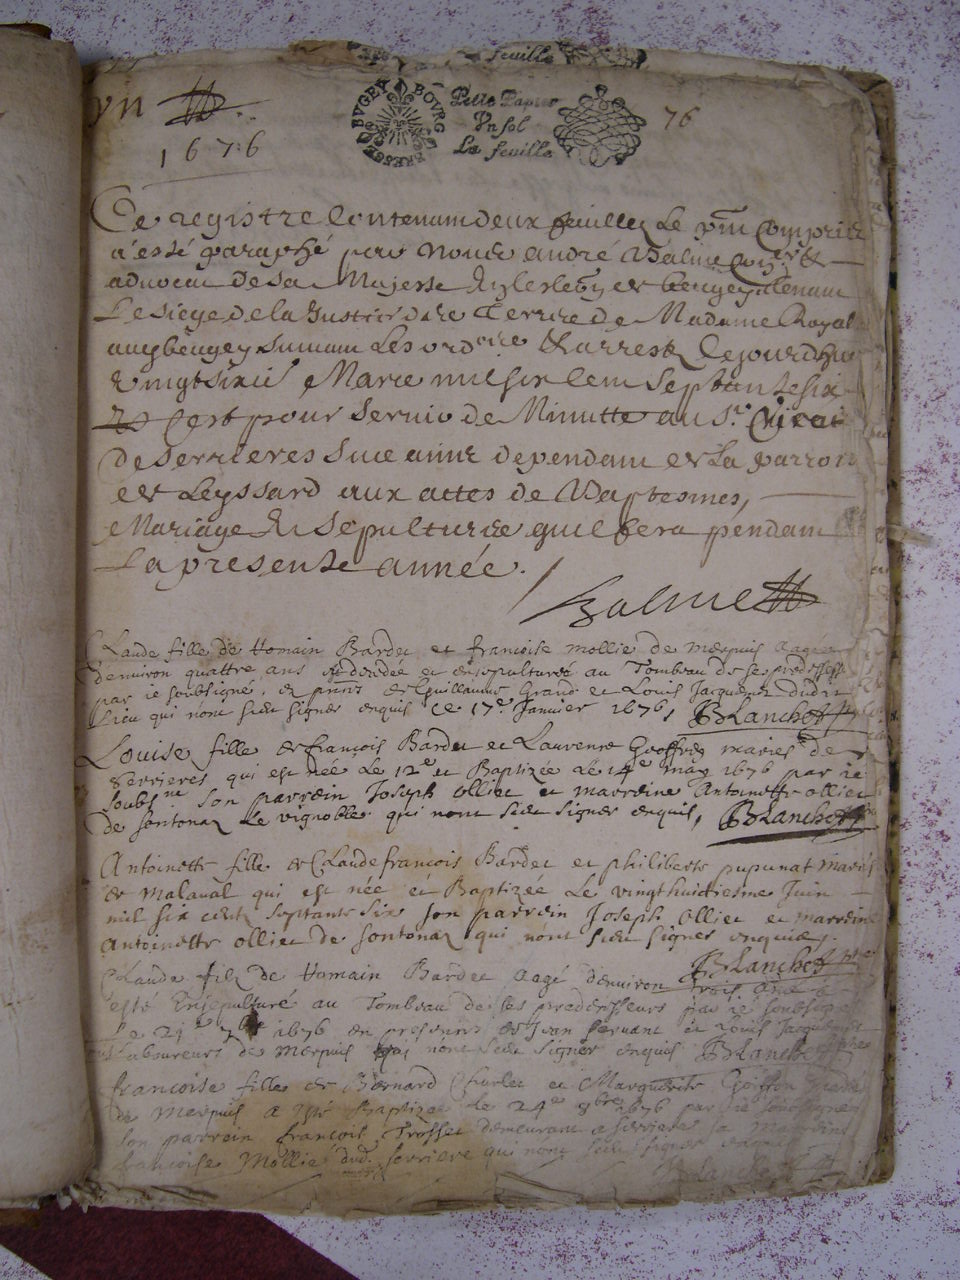 feuille
yn
BVGEY BOVRG BRESSE
Petit Papier
Vn sol
La feuille
76
1676
Ce registre Contenant deux feuilles Le pnt Compris
a esté paraphé par nous andré Balme Conser &
aduocat de sa Majesté et tenant
Le siege de la Justice Terre de Madame Royale
en beugey suiuant Les ordres & arrests Cejourdhuy
vingtsixie Mars mil six cent Septante six
Et C'est pour Seruir de Minutte au Sr. Curé
de Serrieres Son annexe dependant de La parroisse
de Leyssard aux actes de Baptesmes,
Mariage & Sepulture quil fera pendant
La presente année.
Balme
Claude fille de Homain Bardet et francoise mollie de merpuis aagee
denuiron quattre ans est decedée et ensepulturée au Tombeau de ses predecess
par ie soubsigné, en pnce de Guillaume Grand et Louis Jacquemet dudit
Lieu qui n'ont sceu signer enquis ce 17e. Januier 1676, Blanchet
Louise fille de françois Bardet et Laurence Geoffrey mariés de
Serrieres qui est née Le 12e et Baptizée Le 14e may 1676 par ie
soubsne Son parrein Joseph Olliet et marreine Antoinette olliet
de sontonax Le vignoble qui n'ont sceu signer enquis, Blanchet
Antoinette fille de Claude francois Bardet et philiberte pupunat mariés
de malaual qui est née et Baptizée Le vingthuictiesme Juin
mil six cents septante six son parrein Joseph Olliet et marreine
Antoinette olliet de sontonax qui n'ont sceu signer enquis,
Blanchet
Claude filz de Homain Bardet aagé denuiron trois ans a
esté Ensepulturé au Tombeau de ses predecesseurs par ie soubsigné
Le 21e 7bre 1676 en presence de Jean seruant et Louis Jacquemet
laboureurs de merpuis qui n'ont sceu signer enquis Blanchet
francoise fille de Bernard Charlet et Marguerite Goiffon mariés
de merpuis a esté Baptizée Le 24e 8bre 1676 par ie soubsigné
son parrain francois Trosset demeurant a serrieres sa marreine
francoise Mollie dud. serriere qui n'ont sceu signer enquis
Blanchet